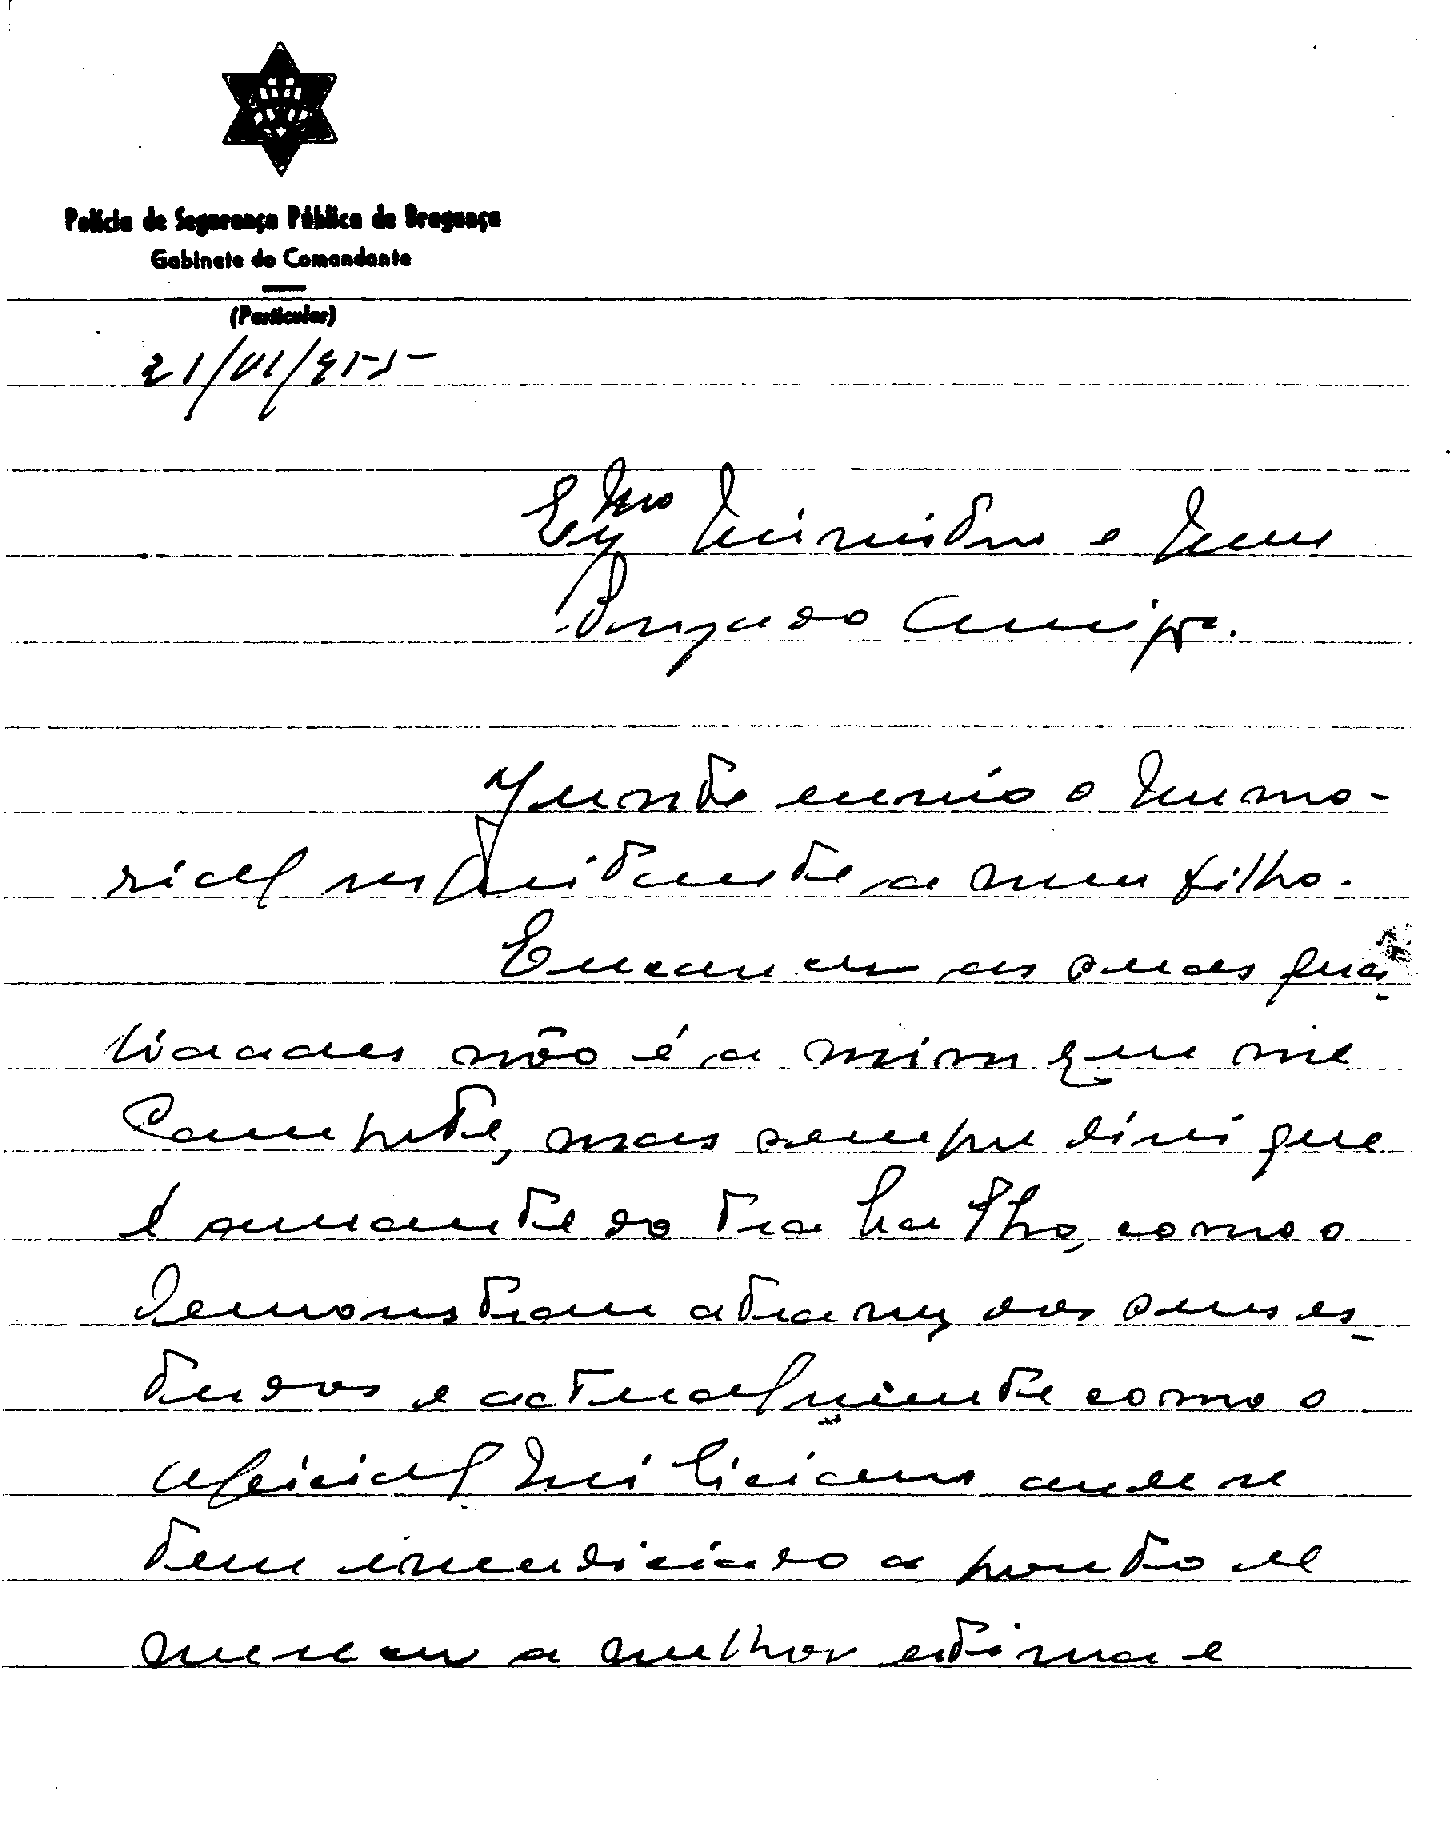 Polícia de Segurança Pública de Bragança
Gabinete do Comandante
(Particular)
21/01/955
Exmo Ministro e meu
Prezado Amigo.
Junto envio o memo-
rial respeitante a meu filho.
Encarecer as suas qua-
lidades não é a mim que me
compete, mas sempre direi que
é amante do trabalho, como o
demonstram atravez dos seus es-
tudos e actualmente como o
oficial miliciano onde se
tem evidenciado a ponto de
merecer a melhor estima e